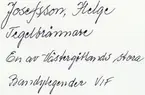 Josefsson, Helge
Tegelbrännare
En av Västergötlands stora
Bandylegender VIF